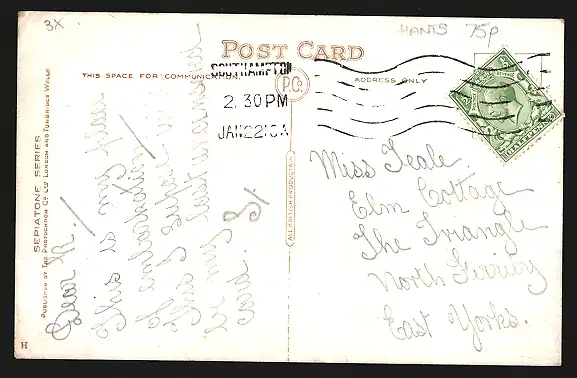 3X
HANTS 75p
POST CARD
THIS SPACE FOR COMMUNICATION
P.C.
ADDRESS ONLY
SOUTHAMPTON
2.30 PM
JAN 22
SEPIATONE SERIES
PUBLISHED BY THE PHOTOCHROM CO LTD LONDON AND TUNBRIDGE WELLS
ALL BRITISH PRODUCTION
Dear
This is my place
of embarkation
This I suppose will
be my last unanswered
card.
Miss Teale.
Elm Cottage
The Triangle
North
East Yorks.
H